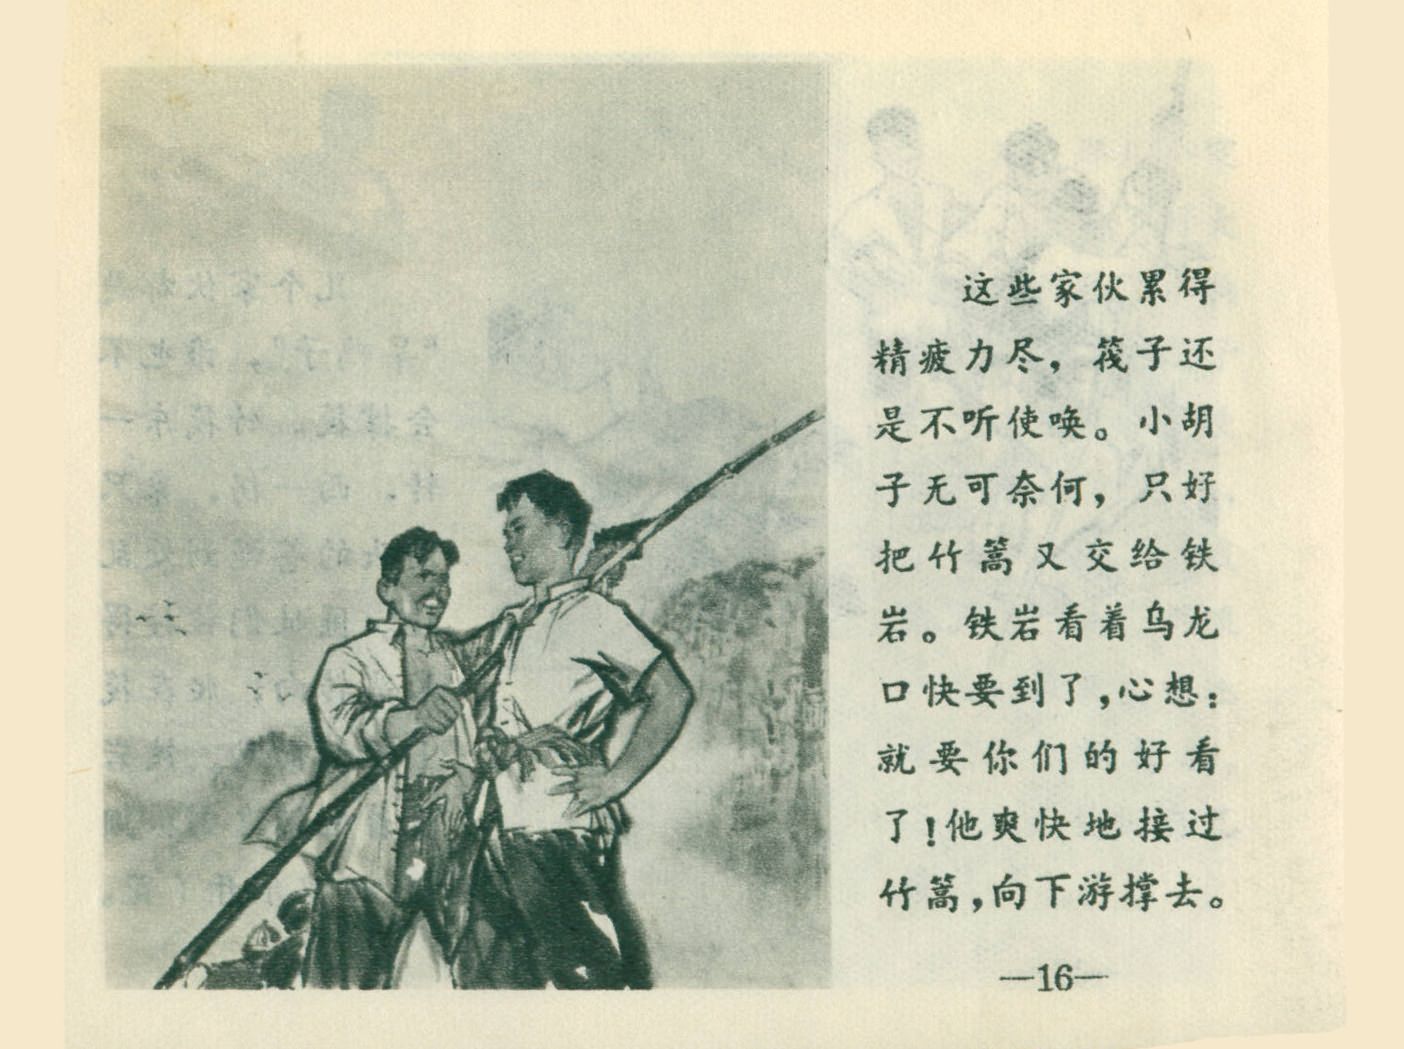 这些家伙累得
精疲力尽，筏子还
是不听使唤。小胡
子无可奈何，只好
把竹篙又交给铁
岩。铁岩看着乌龙
口快要到了，心想：
就要你们的好看
了！他爽快地接过
竹篙，向下游撑去。
—16—